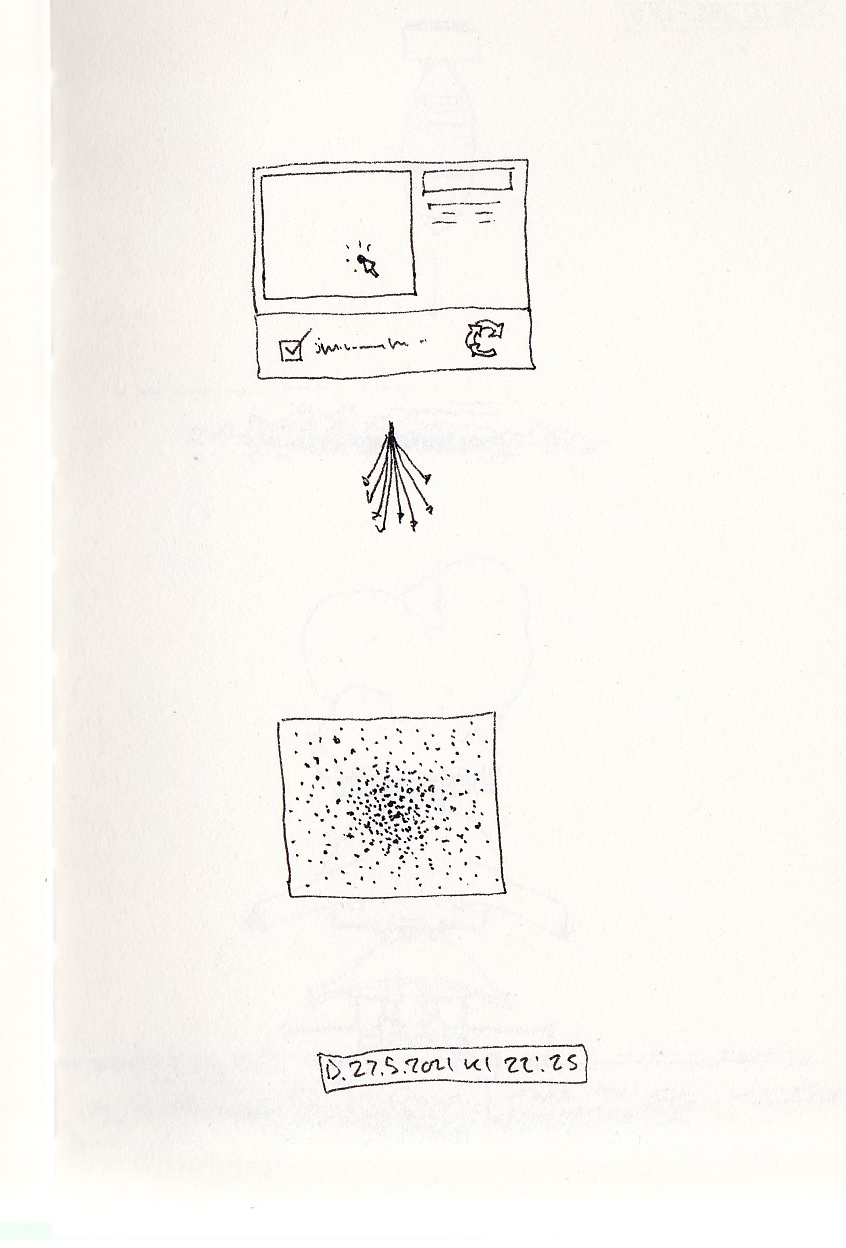 D.27.5.2021 kl 22:25